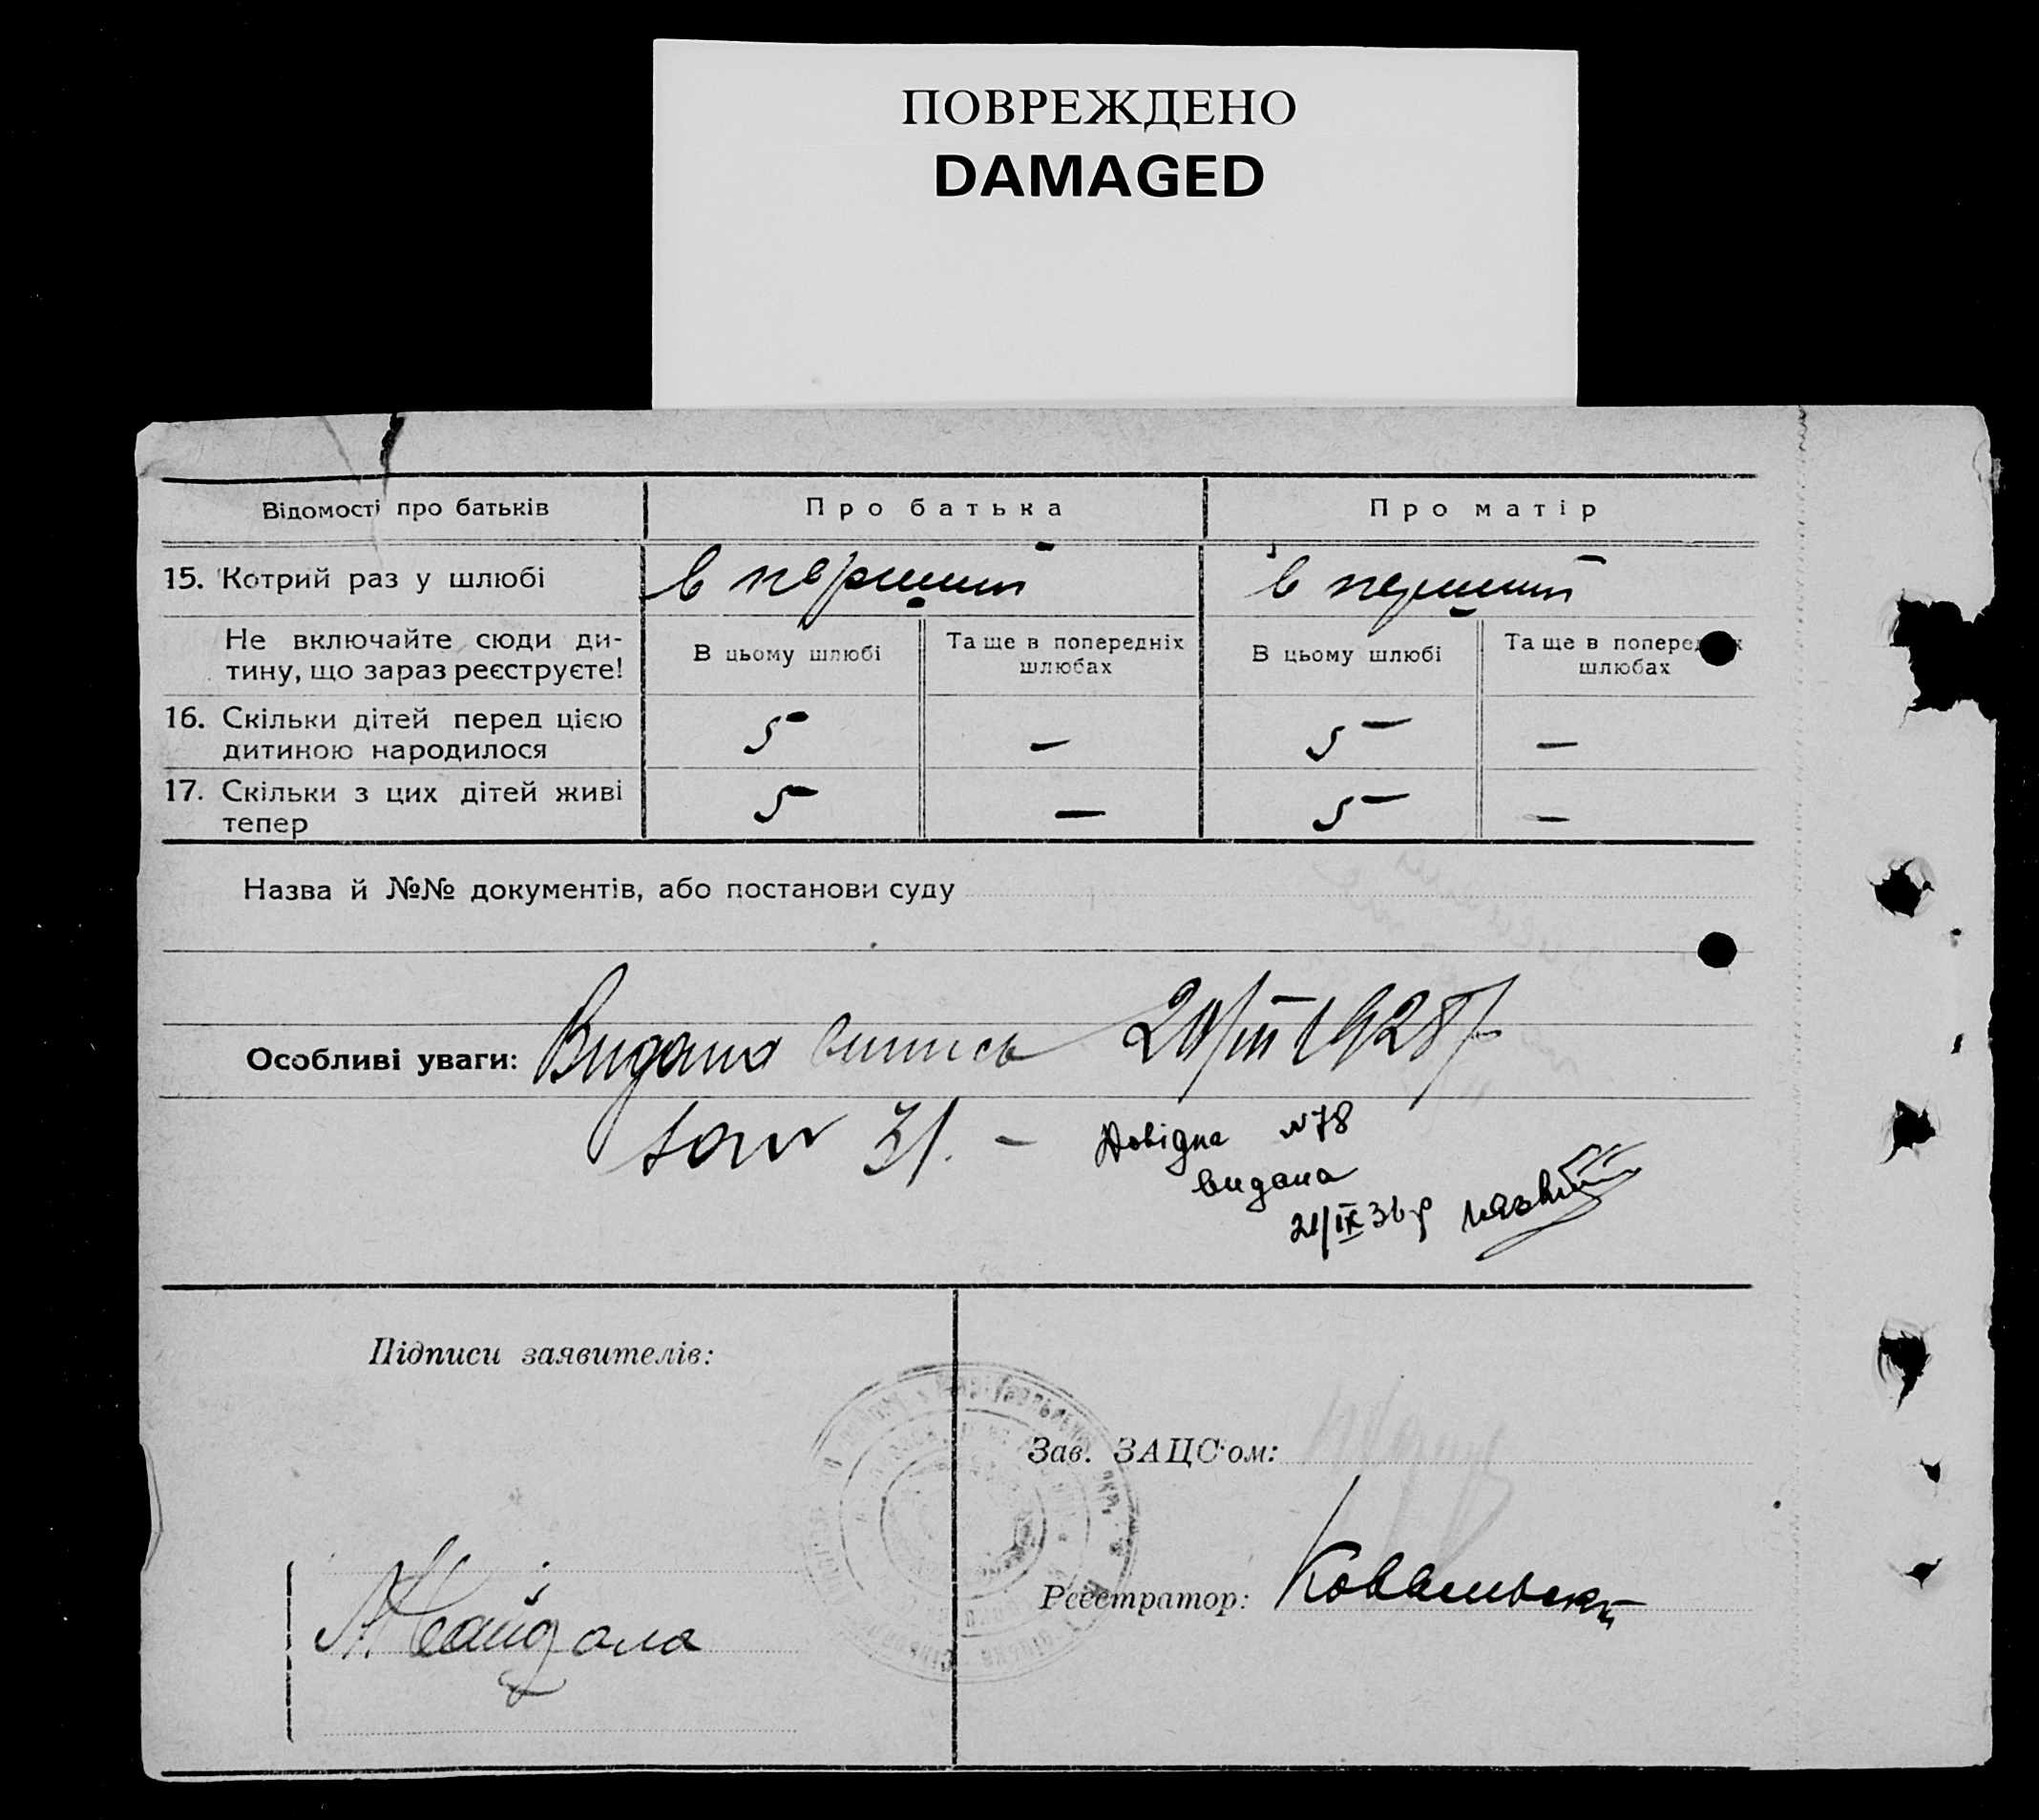 ПОВРЕЖДЕНО
DAMAGED
Відомості про батьків
Про батька
Про матір
15. Котрий раз у шлюбі
в перший
в перший
Не включайте сюди ди-
тину, що зараз реєструєте!
В цьому шлюбі
Та ще в попередніх
шлюбах
В цьому шлюбі
Та ще в поперед х
шлюбах
16. Скільки дітей перед цією
дитиною народилося
5
—
5
—
17. Скільки з цих дітей живі
тепер
5
—
5
—
Назва й №№ документів, або постанови суду
Особливі уваги: Видана випись 1928 р
31. – Довідка №78
видана
21/IX 36 р
Підписи заявителів:
Зав. ЗАЦС'ом:
Реєстратор: Ковальськ